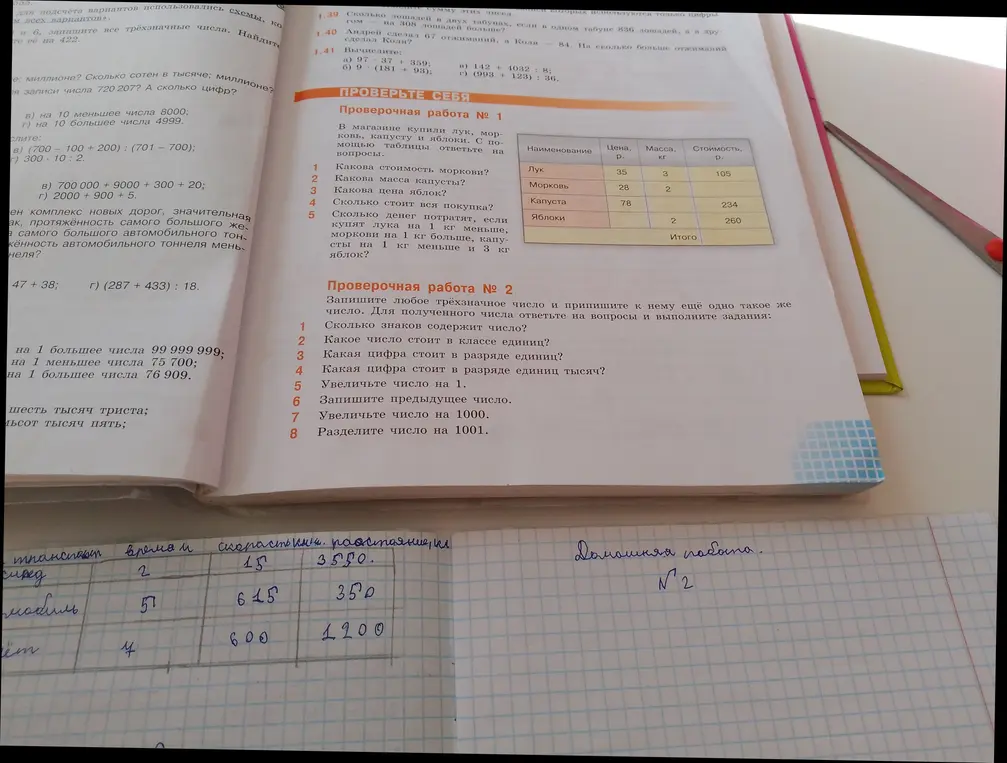 для подсчёта вариантов использовались схемы, ко
всех вариантов».
и 6, запишите все трёхзначные числа. Найдите
те её на 422.
е; миллионе? Сколько сотен в тысяче; миллионе?
записи числа 720 207? А сколько цифр?
в) на 10 меньшее числа 8000;
г) на 10 большее числа 4999.
слите:
в) (700 – 100 + 200) : (701 – 700);
г) 300 · 10 : 2.
в) 700 000 + 9000 + 300 + 20;
г) 2000 + 900 + 5.
ен комплекс новых дорог, значительная
ак, протяжённость самого большого же-
а самого большого автомобильного тон-
жённость автомобильного тоннеля мень-
неля?
47 + 38; г) (287 + 433) : 18.
на 1 большее числа 99 999 999;
на 1 меньшее числа 75 700;
на 1 большее числа 76 909.
шесть тысяч триста;
ьсот тысяч пять;
сумму этих чисел.
которых используются только цифры
1.39 Сколько лошадей в двух табунах, если в одном табуне 836 лошадей, а в дру
гом — на 308 лошадей больше?
1.40 Андрей сделал 67 отжиманий, а Коля — 84. На сколько больше отжиманий
сделал Коля?
1.41 Вычислите:
а) 97 · 37 + 359; в) 142 + 4032 : 8;
б) 9 · (181 + 93); г) (993 + 123) : 36.
ПРОВЕРЬТЕ СЕБЯ
Проверочная работа № 1
В магазине купили лук, мор-
ковь, капусту и яблоки. С по-
мощью таблицы ответьте на
вопросы.
1 Какова стоимость моркови?
2 Какова масса капусты?
3 Какова цена яблок?
4 Сколько стоит вся покупка?
5 Сколько денег потратят, если
купят лука на 1 кг меньше,
моркови на 1 кг больше, капу-
сты на 1 кг меньше и 3 кг
яблок?
Наименование Цена, р. Масса, кг Стоимость, р.
Лук 35 3 105
Морковь 28 2
Капуста 78 234
Яблоки 2 260
Итого
Проверочная работа № 2
Запишите любое трёхзначное число и припишите к нему ещё одно такое же
число. Для полученного числа ответьте на вопросы и выполните задания:
1 Сколько знаков содержит число?
2 Какое число стоит в классе единиц?
3 Какая цифра стоит в разряде единиц?
4 Какая цифра стоит в разряде единиц тысяч?
5 Увеличьте число на 1.
6 Запишите предыдущее число.
7 Увеличьте число на 1000.
8 Разделите число на 1001.
транспорт время ч скорость расстояние,
2 15 3550.
мобиль 5 615 350
ёт 7 600 1200
Домашняя работа.
№ 2